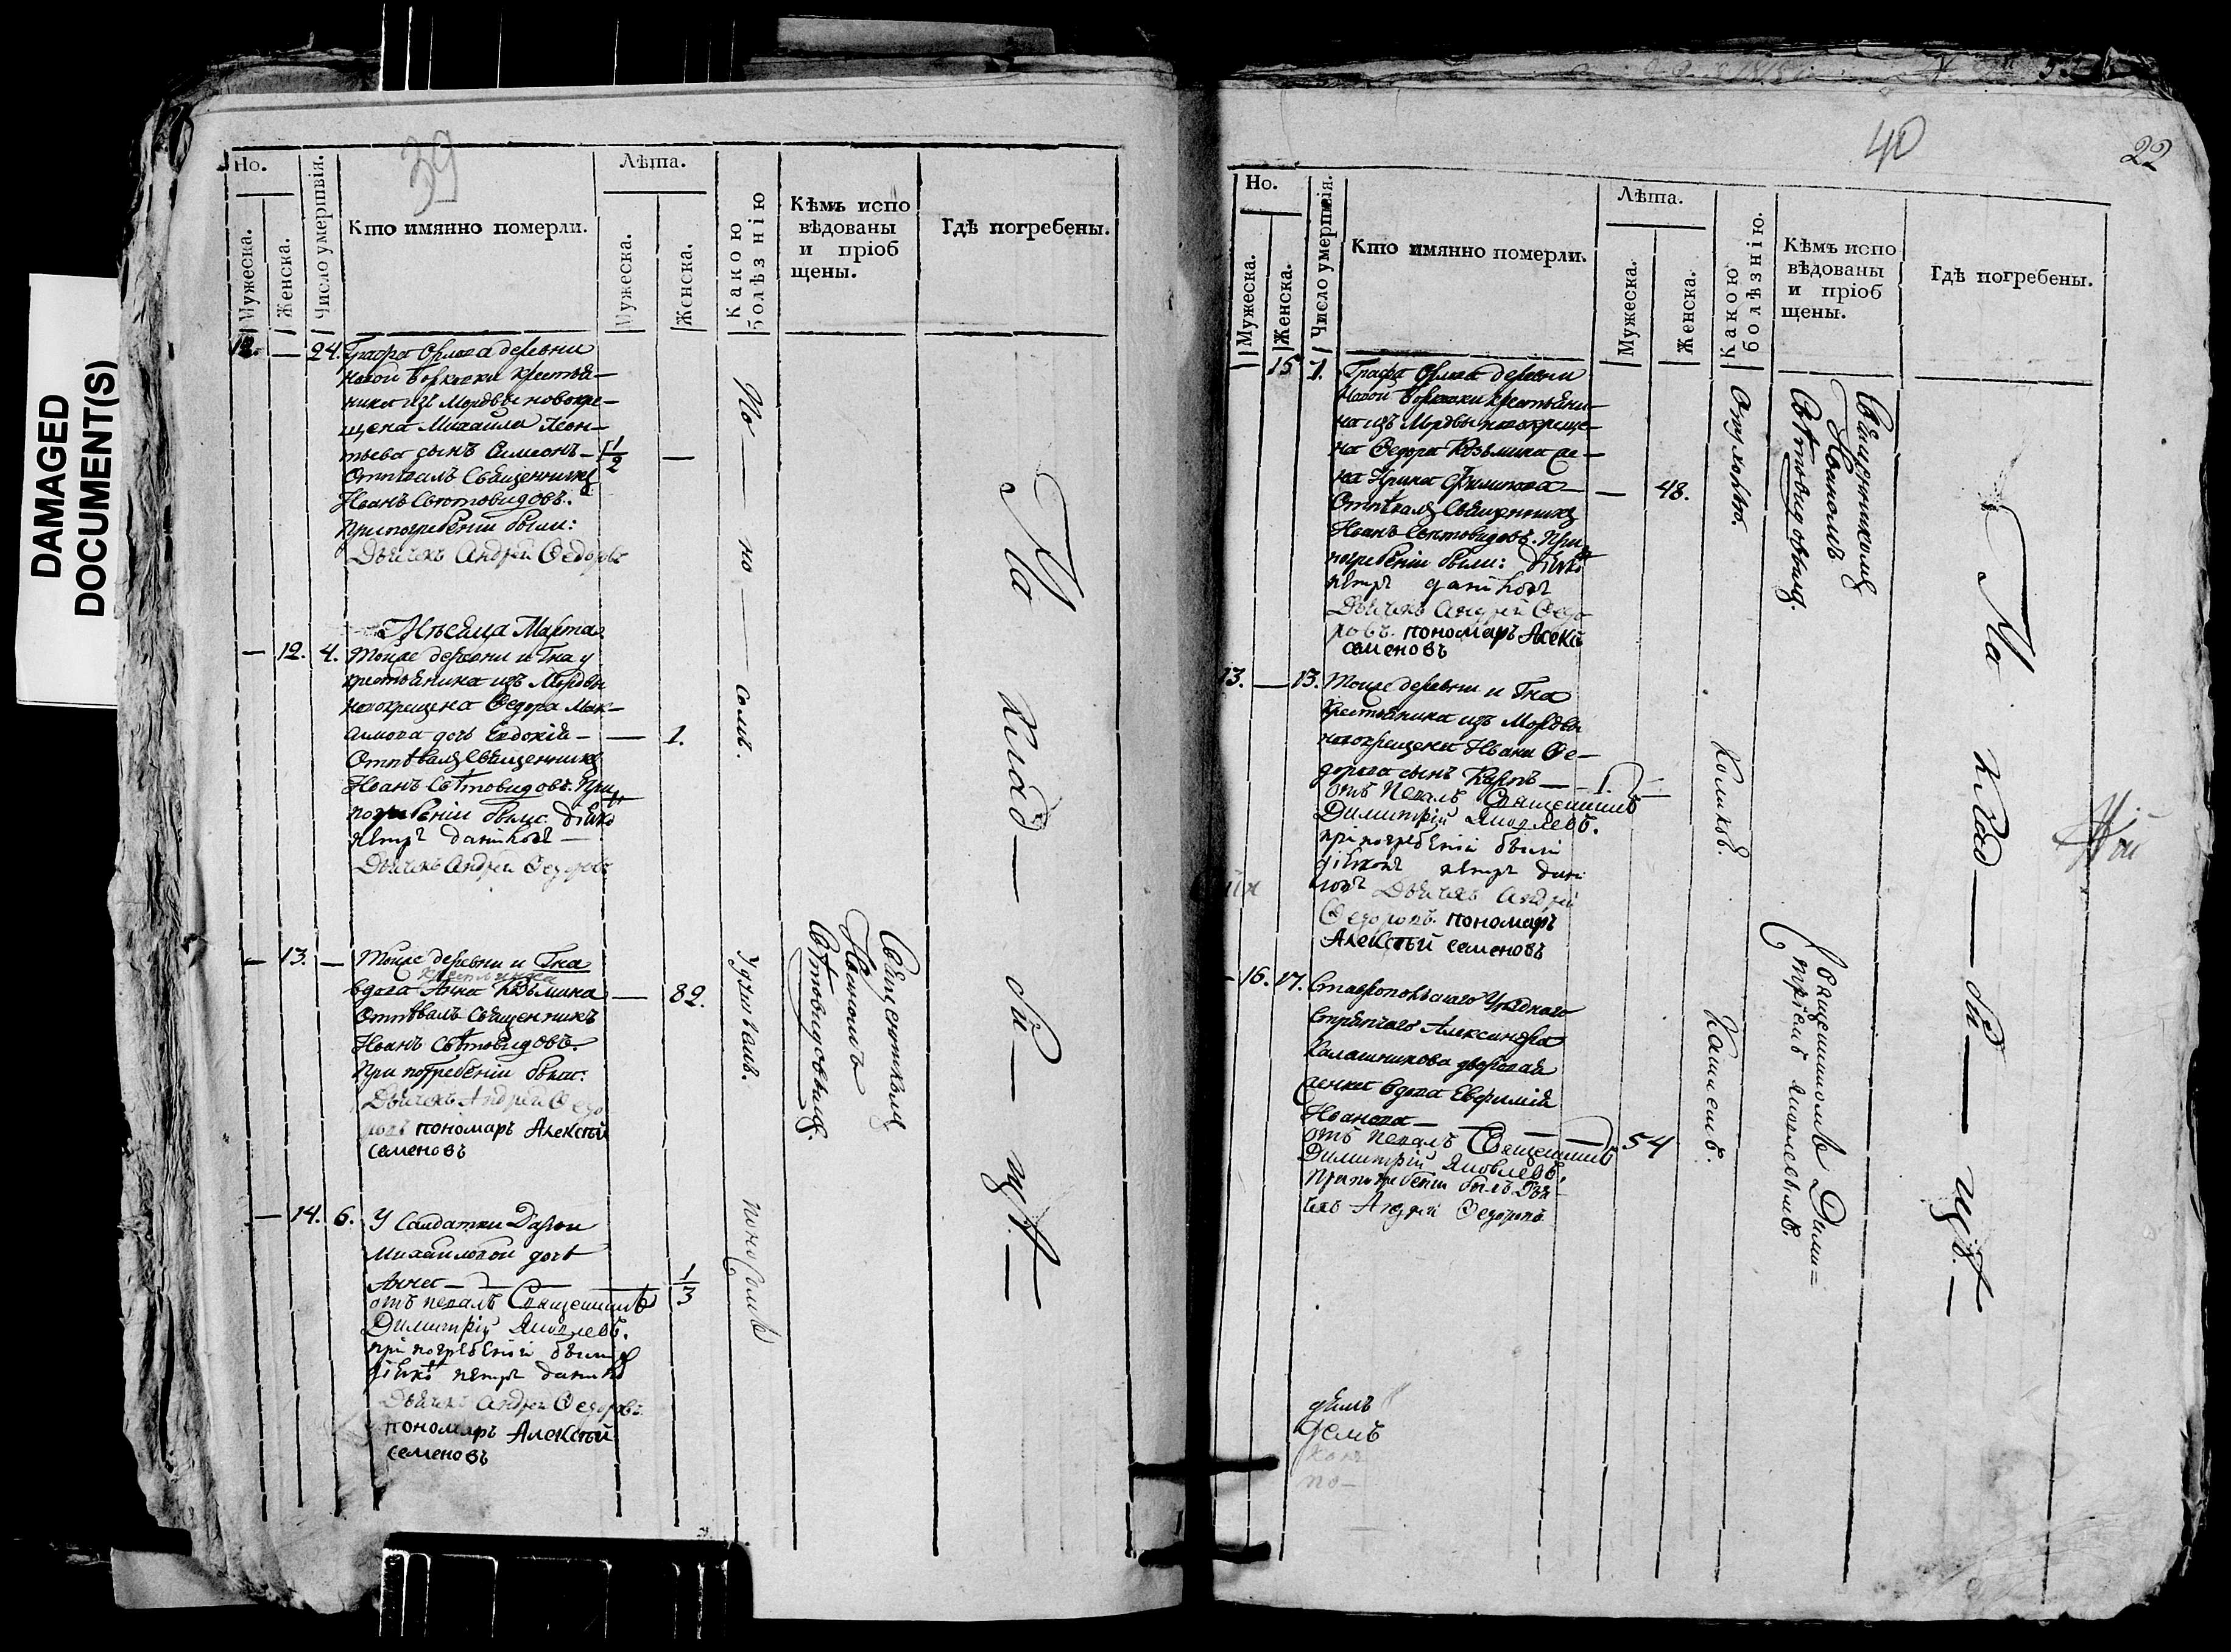 DAMAGED
DOCUMENT(S)
39
Но.
Мужеска.
Женска.
Число умершвія.
Кто имянно померли.
Лѣта.
Мужеска.
Женска.
Какою болѣзнію
Кѣмъ испо
вѣдованы
и пріоб
щены.
Гдѣ погребены.
12. — 24. Графа Орлова деревни
новой Борковки крестья-
нина изъ Мордвы новокре-
щена Михаила Леон-
тьева сынъ Симеонъ — 1/2 —
Отпѣвалъ Священникъ
Иоанъ Свѣтовидовъ.
При погребении были:
Дьячекъ Андрей Федоровъ
Поносомъ.
Мѣсяца Марта
— 12. 4. Тойже деревни и Гна
крестьянина изъ Мордвы
новокрещена Федора Мак-
симова дочь Евдокія — — 1.
Отпѣвалъ Священникъ
Иоанъ Свѣтовидовъ. При
погребении были: діяко
петръ данилов —
Дьячекъ Андрей Федоровъ
— 13. — Тойже деревни и Гна
крестьянка
вдова Анна Козьмина — 82.
Отпѣвалъ Священникъ
Иоанъ Свѣтовидовъ.
При погребении были:
Дьячекъ Андрей Федо
ровъ пономарь Алексѣй
семеновъ
Удушьемъ.
Священникомъ
Иоаномъ
Свѣтовидовымъ.
— 14. 6. У Салдатки Дарьи
Михайловой дочь
Анна — 1/3
отъ певалъ Священникъ
Димитрій Яковлевъ.
при погребеніи были
діяко петръ данило
Дьячекъ Андрей Федоровъ
пономарь Алексѣй
семеновъ
поносомъ
На кладбищѣ. —
40
22
Но.
Мужеска.
Женска.
Число умершвія.
Кто имянно померли.
Лѣта.
Мужеска.
Женска.
Какою болѣзнію.
Кѣмъ испо
вѣдованы
и пріоб
щены.
Гдѣ погребены.
15 7. Графа Орлова деревни
Новой Борковки крестьяни-
на изъ Мордвы новокреще-
на Федора Козьмина же-
на Ирина Филипова — — 48.
Отпѣвалъ Священникъ
Иоанъ Свѣтовидовъ. При
погребении были: діяко
петръ данилов
Дьячекъ Андрей Федо
ровъ. пономарь Алексѣй
семеновъ
Священникомъ
Иоаномъ
Свѣтовидовымъ.
13. — 13. Тойже деревни и Гна
крестьянина изъ Мордвы
новокрещена Ивана Фе-
дорова сынъ Карпъ — 1.
отъ певалъ Священникъ
Димитрій Яковлевъ.
при погребеніи были
діяконъ петръ дани
ловъ Дьячекъ Андрей
Федоровъ. пономарь
Алексѣй семеновъ
— 16. 17. Ставропольскаго Уѣзднаго
Стряпчаго Александра
Калашникова дворовая
женка вдова Евфимія
Иванова — 54
отъ певалъ Священникъ
Димитрій Яковлевъ,
При погребеніи былъ Дья-
чекъ Андрей Федоровъ
Кашлемъ.
Священникомъ Дими=
тріемъ Яковлевымъ.
На кладбищѣ. —